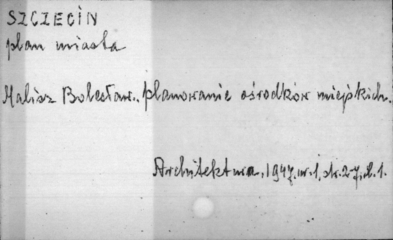 SZCZECIN
plan miasta
Malisz Bolesław. planowanie ośrodków miejskich.
Architektura, 1947, nr. 1, str. 2-7, il. 1.